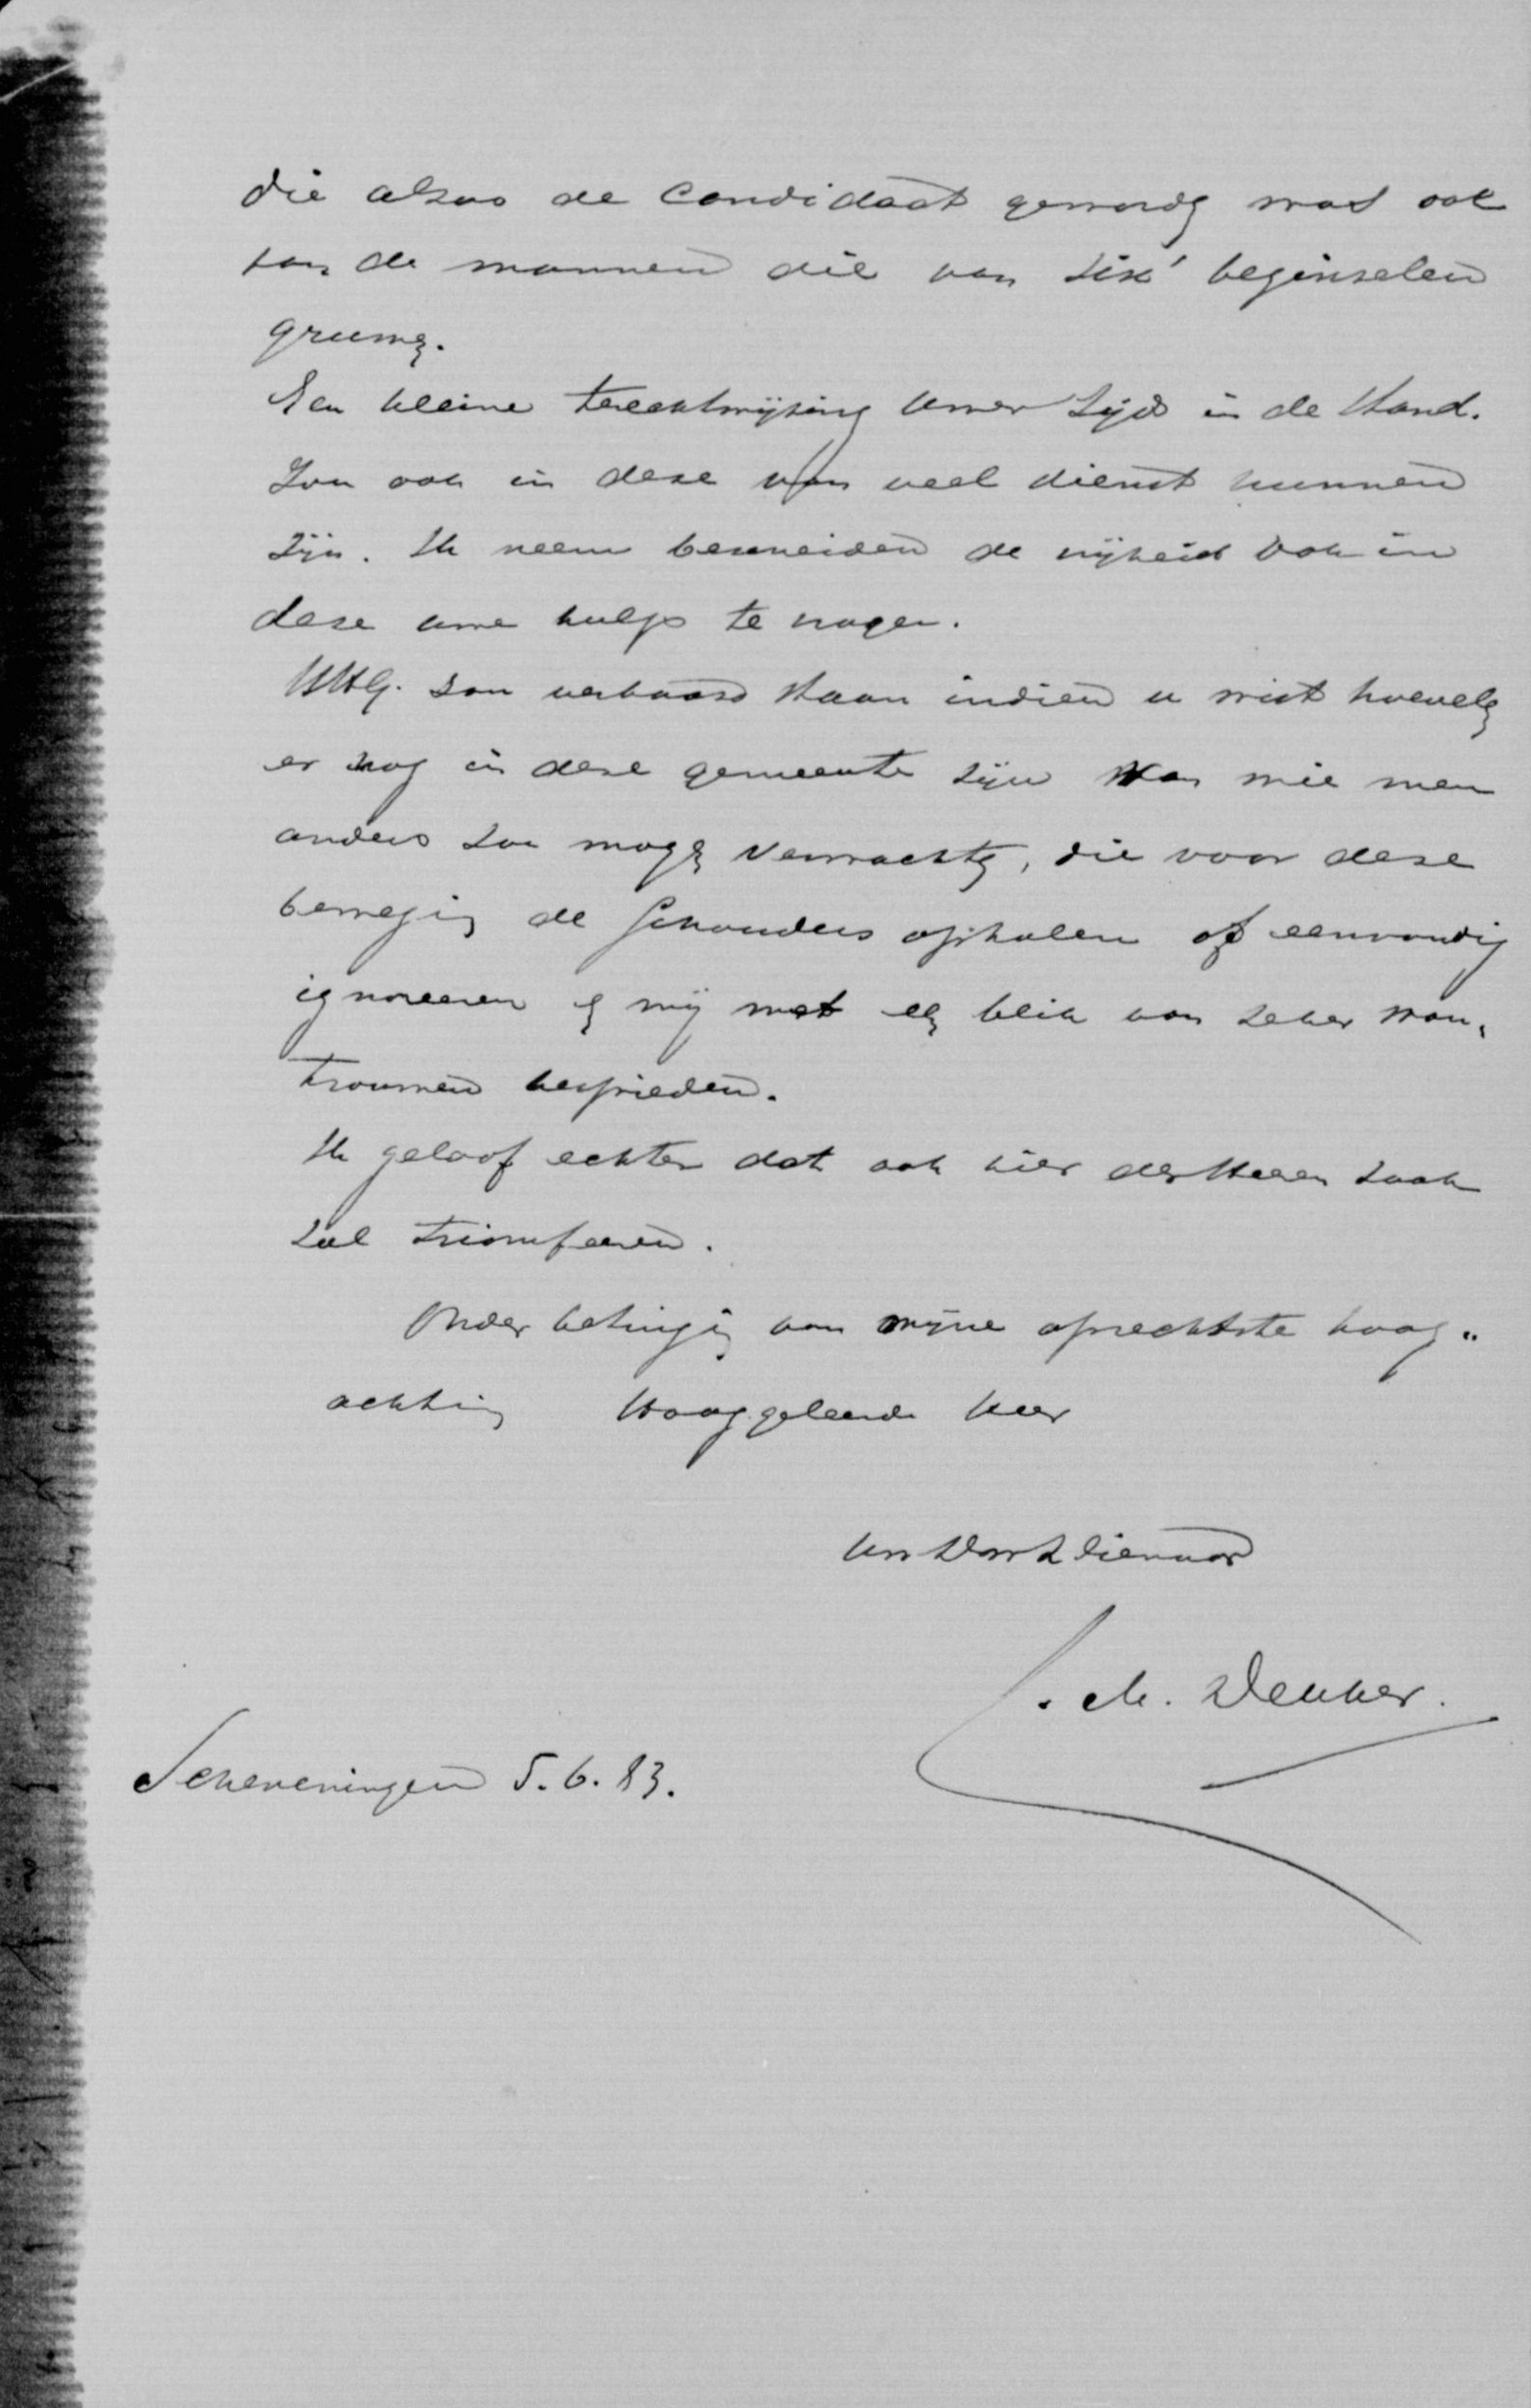 die alzoo de Candidaat geword wat ook
van de mannen die van Six' beginselen
gruwen.
Een kleine terechtwijzing Uwer zijds in de Stand.
zou ook in deze van veel dienst kunnen
zijn. Ik neem bescheiden de vrijheid ook in
deze uwe hulp te vragen.
UHG. zou verbaasd staan indien u wist hoevelen
er nog in deze gemeente zijn van wie men
anders zou mogen verwachten, die voor deze
beweging de schouders ophalen of eenvoudig
ignoreeren en mij met een blik van zeker wan„
trouwen bespieden.
Ik geloof echter dat ook hier des Heeren zaak
zal triomfeeren.
Onder betuiging van mijne oprechtste hoog„
achting Hooggeleerde Heer
Uw dienaar
. M. Dekker.
Scheveningen 5.6.83.